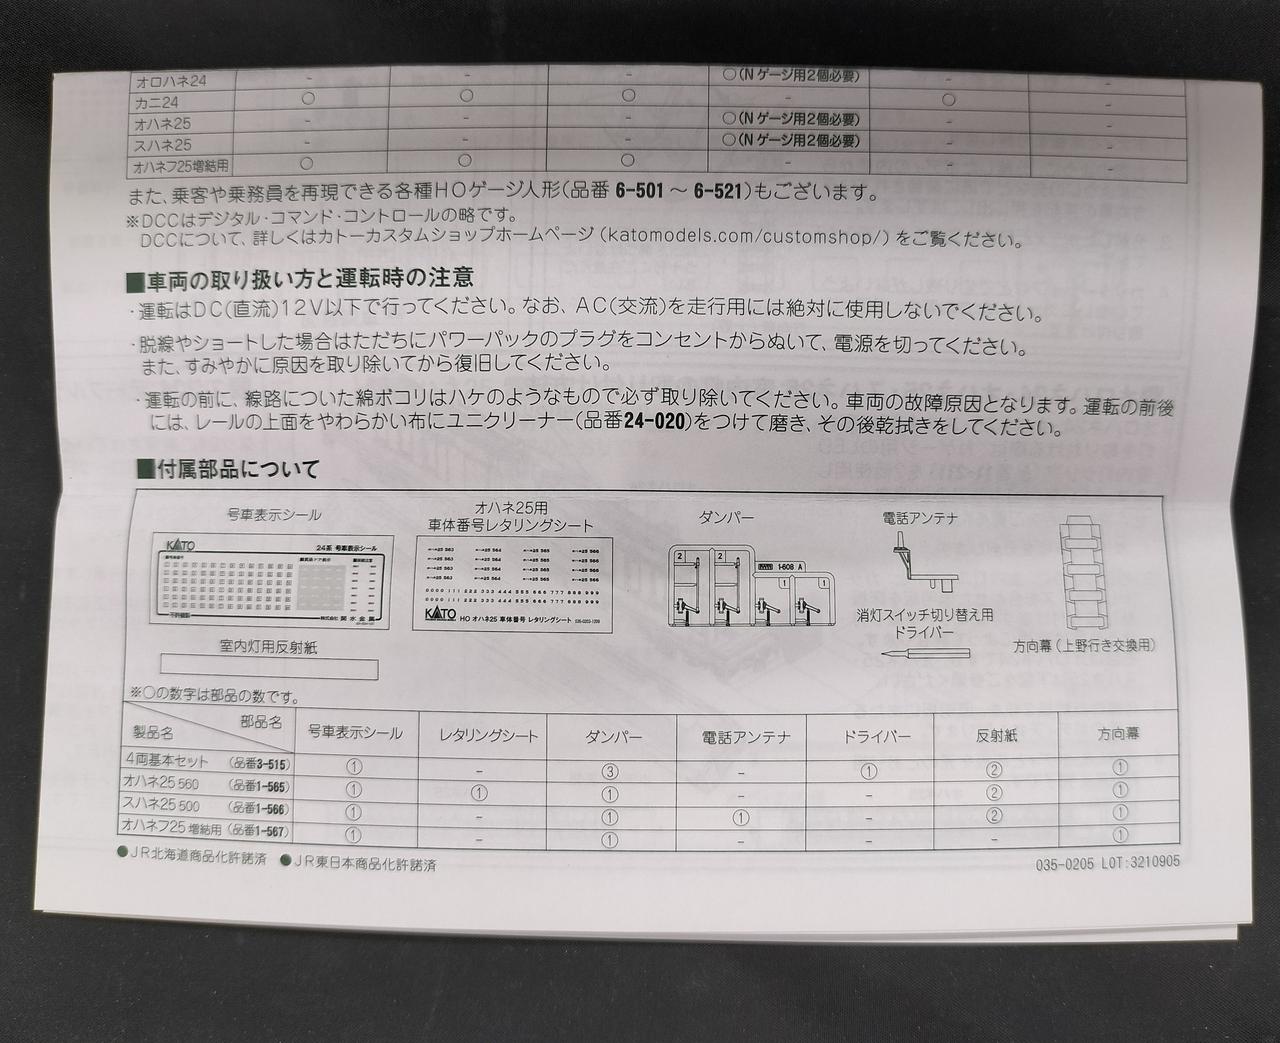 オロハネ24 - - - ○(Nゲージ用2個必要) - -
カニ24 ○ ○ ○ - ○ -
オハネ25 - - - ○(Nゲージ用2個必要) - -
スハネ25 - - - ○(Nゲージ用2個必要) - -
オハネフ25増結用 ○ ○ ○ - - -
また、乗客や乗務員を再現できる各種HOゲージ人形(品番 6-501 ～ 6-521)もございます。
※DCCはデジタル・コマンド・コントロールの略です。
DCCについて、詳しくはカトーカスタムショップホームページ (katomodels.com/customshop/) をご覧ください。
■車両の取り扱い方と運転時の注意
・運転はDC(直流)12V以下で行ってください。なお、AC(交流)を走行用には絶対に使用しないでください。
・脱線やショートした場合はただちにパワーパックのプラグをコンセントからぬいて、電源を切ってください。
また、すみやかに原因を取り除いてから復旧してください。
・運転の前に、線路についた綿ボコリはハケのようなもので必ず取り除いてください。車両の故障原因となります。運転の前後
には、レールの上面をやわらかい布にユニクリーナー(品番24-020)をつけて磨き、その後乾拭きをしてください。
■付属部品について
号車表示シール
KATO
24系 号車表示シール
株式会社 関水金属
オハネ25用
車体番号レタリングシート
オハネ25 563 オハネ25 564 オハネ25 565 オハネ25 566
オハネ25 563 オハネ25 564 オハネ25 565 オハネ25 566
オハネ25 563 オハネ25 564 オハネ25 565 オハネ25 566
オハネ25 563 オハネ25 564 オハネ25 565 オハネ25 566
0000 111 222 333 444 555 666 777 888 999
0000 111 222 333 444 555 666 777 888 999
KATO HO オハネ25 車体番号 レタリングシート
ダンパー
2 2 1-608 A 1 1
電話アンテナ
消灯スイッチ切り替え用
ドライバー
方向幕(上野行き交換用)
室内灯用反射紙
※○の数字は部品の数です。
部品名 製品名 号車表示シール レタリングシート ダンパー 電話アンテナ ドライバー 反射紙 方向幕
4両基本セット (品番3-515) ① - ③ - ① ② ①
オハネ25 560 (品番1-565) ① ① ① - - ② ①
スハネ25 500 (品番1-566) ① - ① ① - ② ①
オハネフ25 増結用 (品番1-567) ① - ① - - - ①
●JR北海道商品化許諾済 ●JR東日本商品化許諾済
035-0205 LOT:3210905